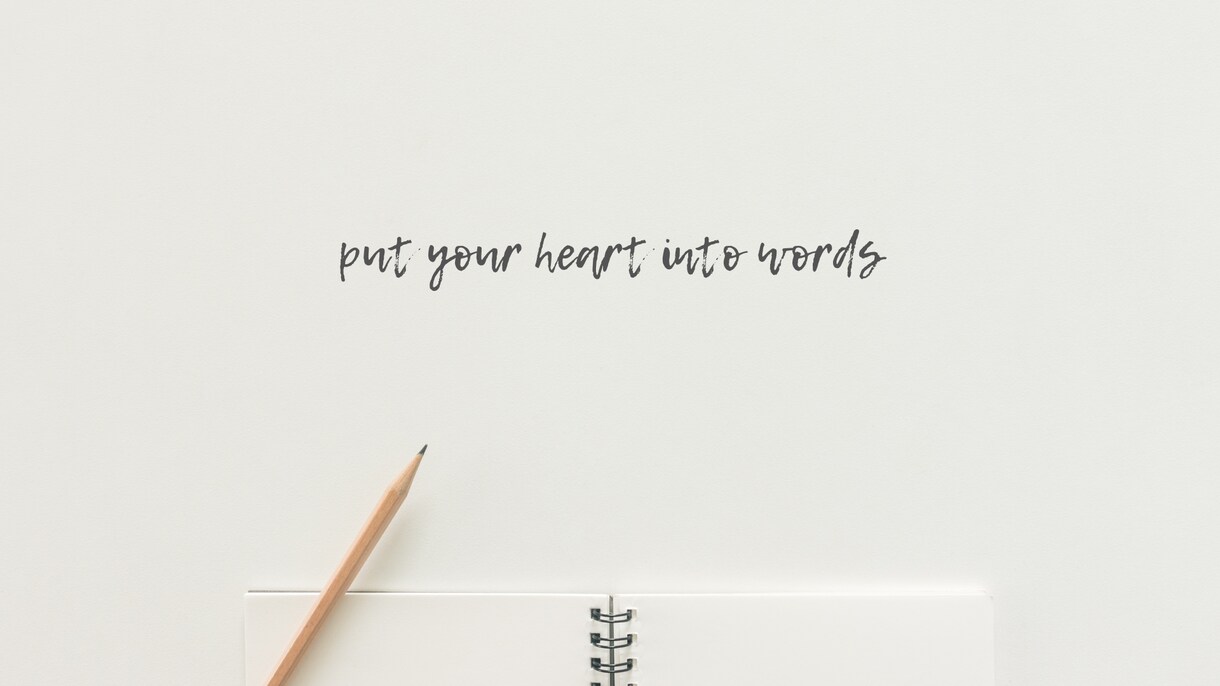 put your heart into words